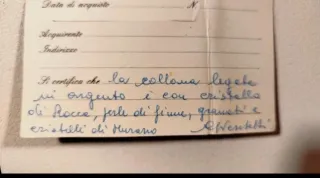 Data di acquisto N
Acquirente
Indirizzo
Si certifica che la collana legata
in argento è con cristallo
di Rocca, perle di fiume, granati e
cristalli di Murano